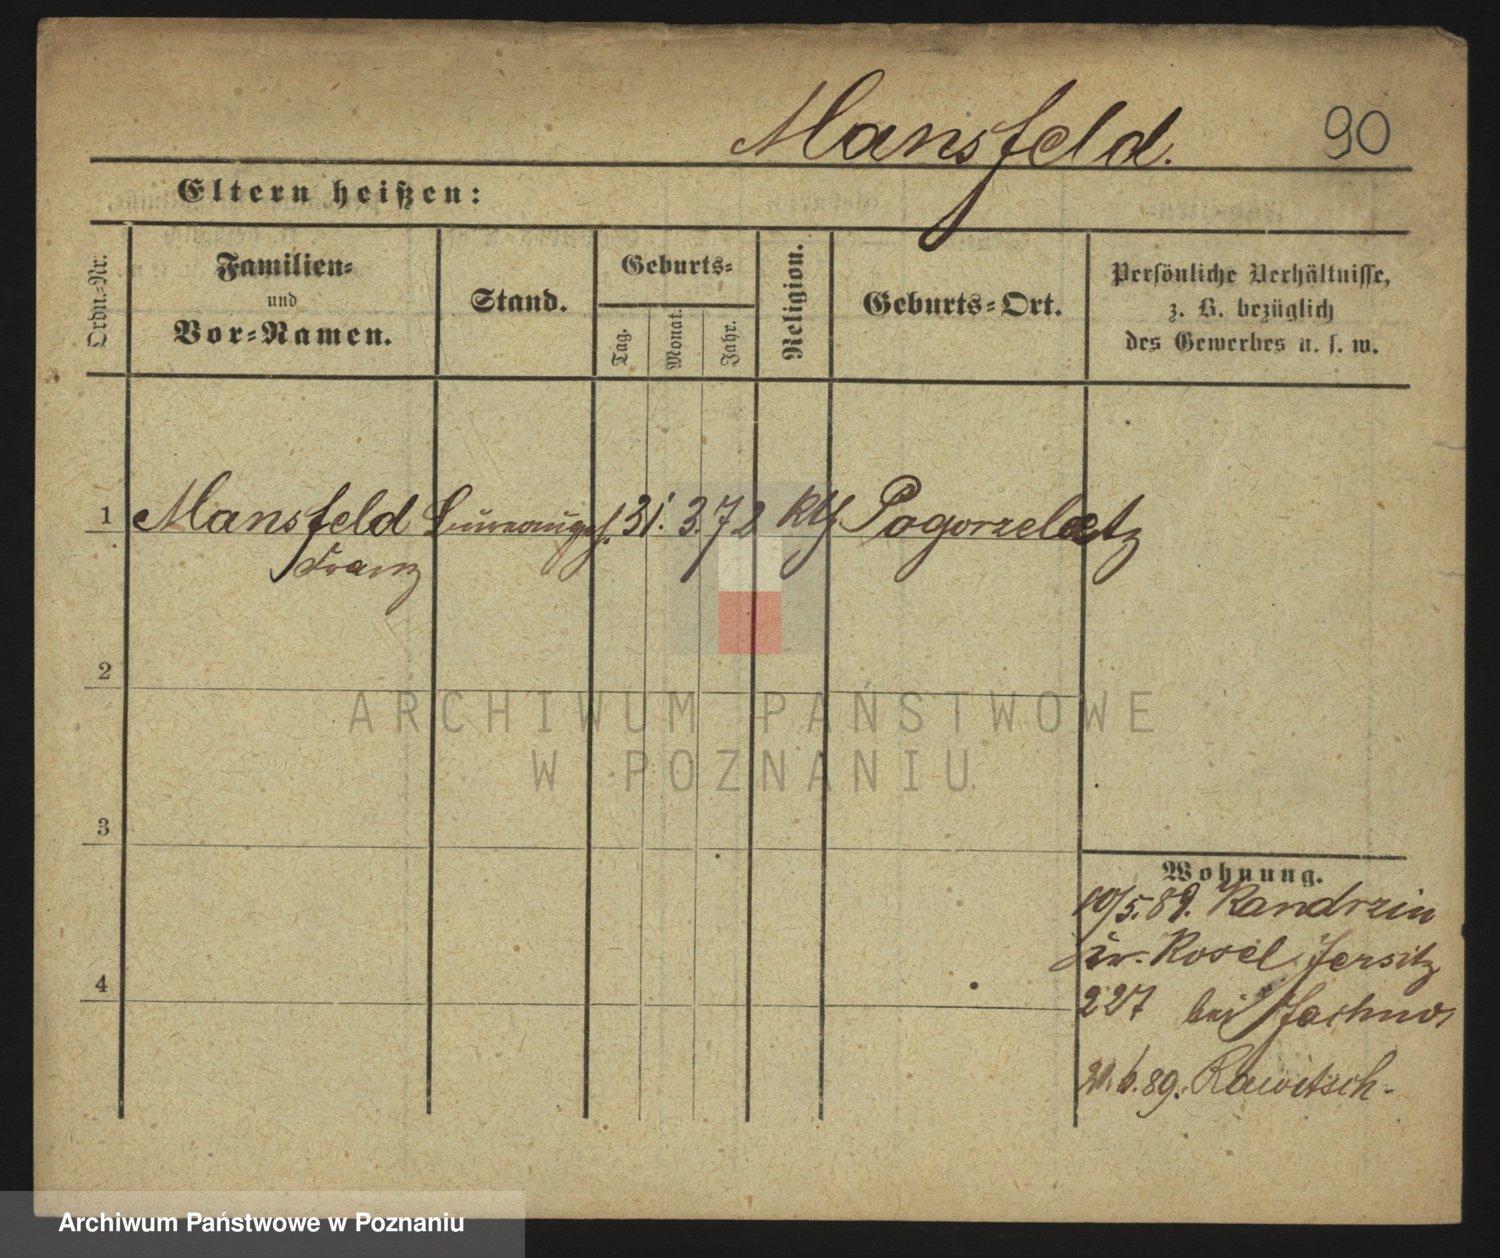 Mansfeld. 90
Eltern heißen:
Ordn.-Nr.
Familien-
und
Vor-Namen.
Stand.
Geburts-
Tag.
Monat.
Jahr.
Religion.
Geburts-Ort.
Persönliche Verhältnisse,
z. B. bezüglich
des Gewerbes u. s. w.
1 Mansfeld Bureaugeh. 31. 3. 72 kth Pogorzeletz
Franz
2
ARCHIWUM PAŃSTWOWE
W POZNANIU
3
Wohnung.
10/5.89. Kandrzin
Kr. Kosel Jersitz
4
227 bei
21.6.89. Rawitsch.
Archiwum Państwowe w Poznaniu